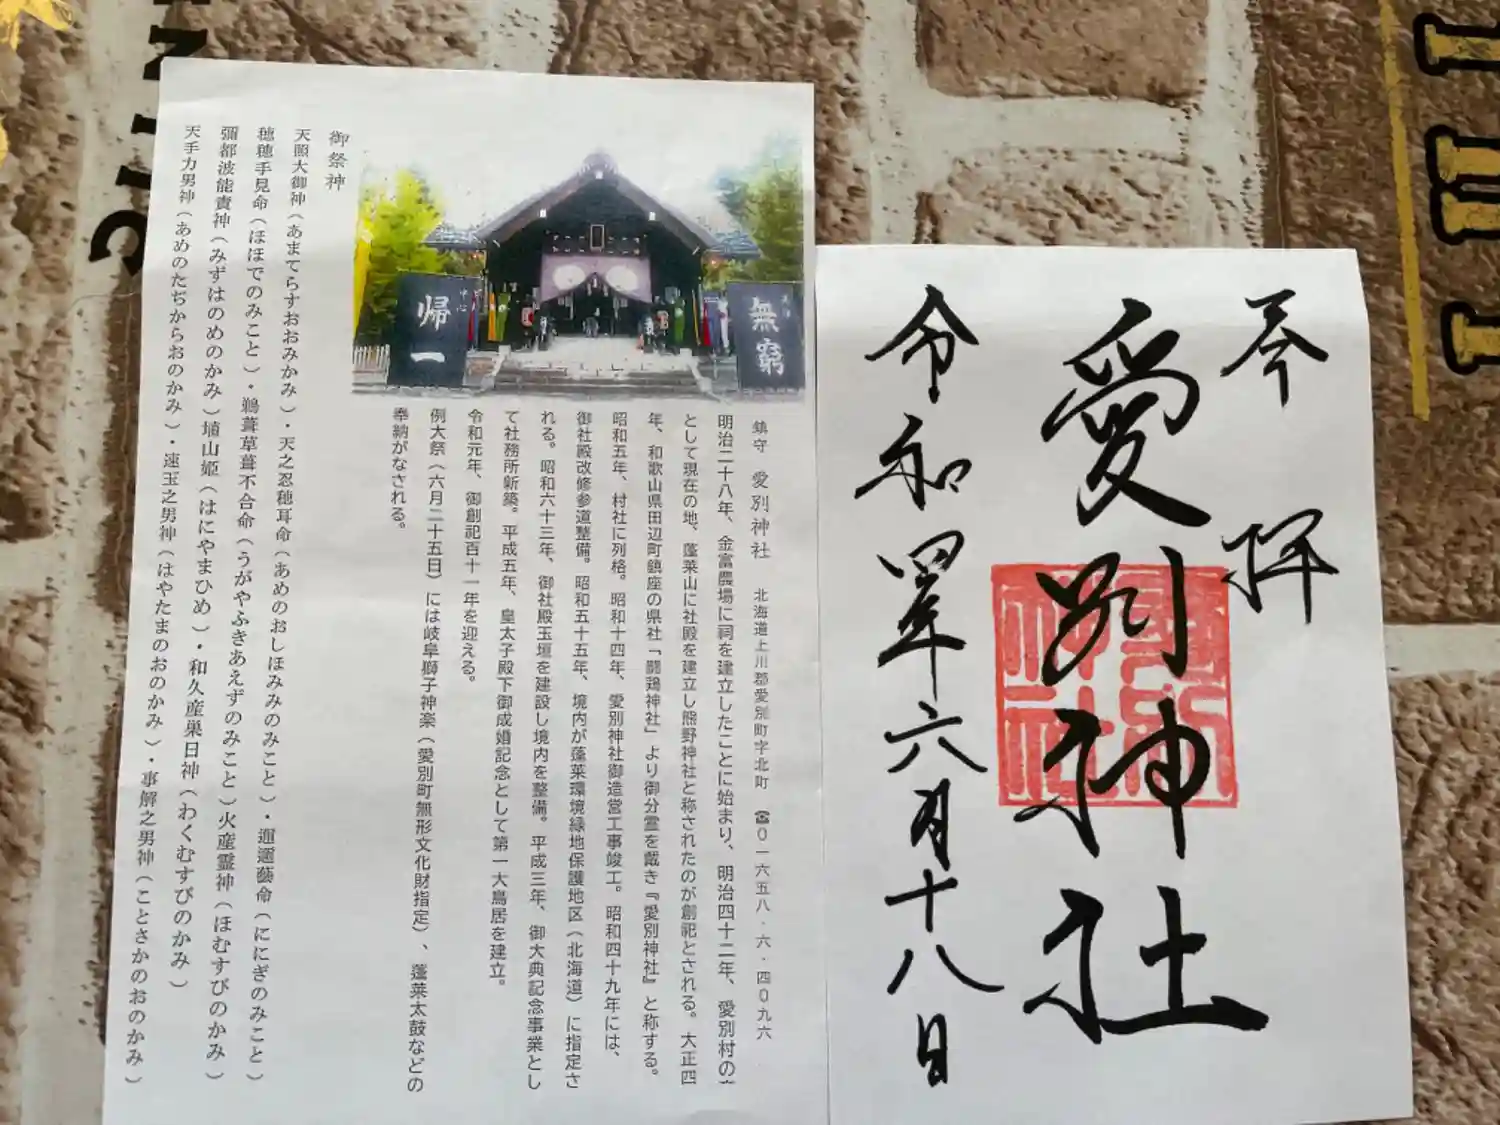 奉拝
愛別神社
令和四年六月十八日
帰一
無窮
鎮守 愛別神社 北海道上川郡愛別町字北町 ☎０一六五八‐六‐四０九六
明治二十八年、金富農場に祠を建立したことに始まり、明治四十二年、愛別村の
として現在の地、蓬莱山に社殿を建立し熊野神社と称されたのが創祀とされる。大正四
年、和歌山県田辺町鎮座の県社「闘鶏神社」より御分霊を戴き『愛別神社』と称する。
昭和五年、村社に列格。昭和十四年、愛別神社御造営工事竣工。昭和四十九年には、
御社殿改修参道整備。昭和五十五年、境内が蓬莱環境緑地保護地区（北海道）に指定さ
れる。昭和六十三年、御社殿玉垣を建設し境内を整備。平成三年、御大典記念事業とし
て社務所新築。平成五年、皇太子殿下御成婚記念として第一大鳥居を建立。
令和元年、御創祀百十一年を迎える。
例大祭（六月二十五日）には岐阜獅子神楽（愛別町無形文化財指定）、蓬莱太鼓などの
奉納がなされる。
御祭神
天照大御神（あまてらすおおみかみ）・天之忍穂耳命（あめのおしほみみのみこと）・邇邇藝命（ににぎのみこと）
穂穂手見命（ほほでのみこと）・鵜葺草葺不合命（うがやふきあえずのみこと）火産霊神（ほむすびのかみ）
彌都波能賣神（みずはのめのかみ）埴山姫（はにやまひめ）・和久産巣日神（わくむすびのかみ）
天手力男神（あめのたぢからおのかみ）・速玉之男神（はやたまのおのかみ）・事解之男神（ことさかのおのかみ）